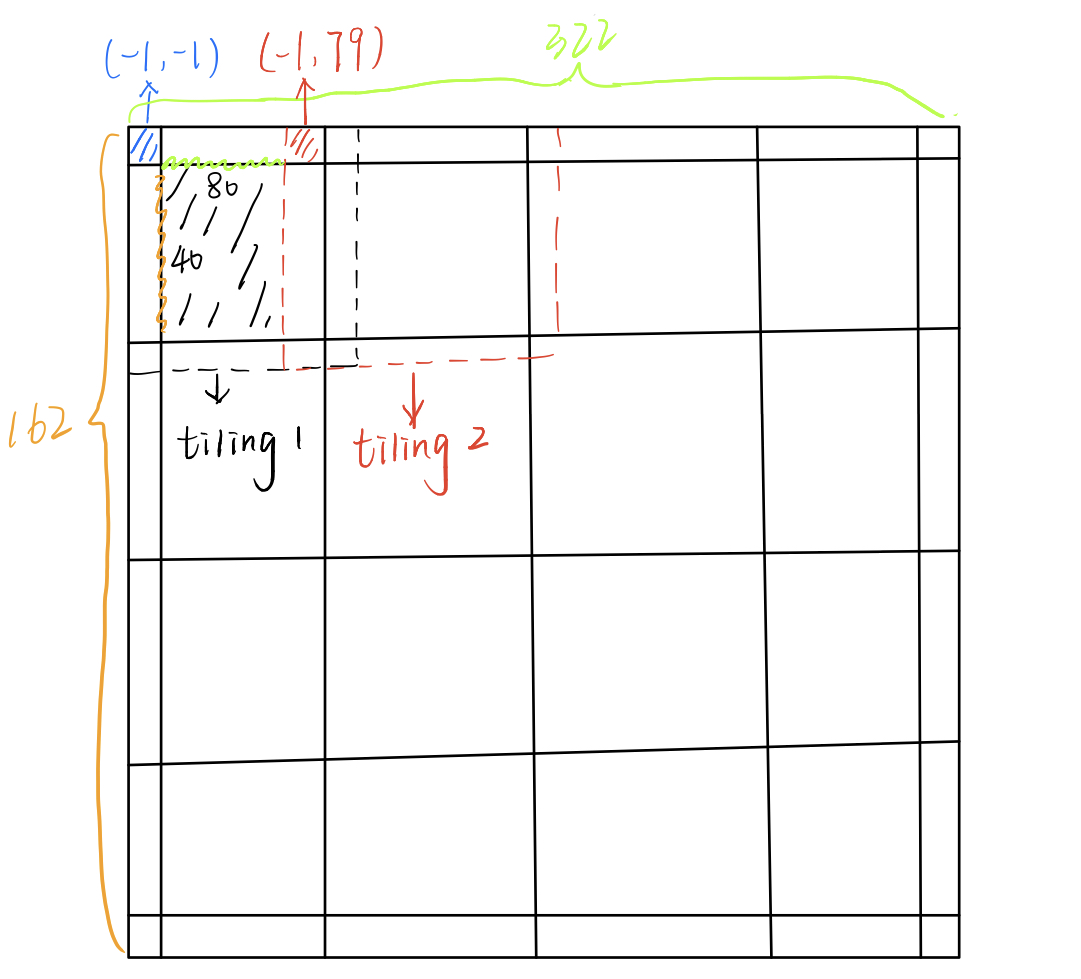 (-1,-1)
(-1,79)
322
80
40
162
tiling 1
tiling 2